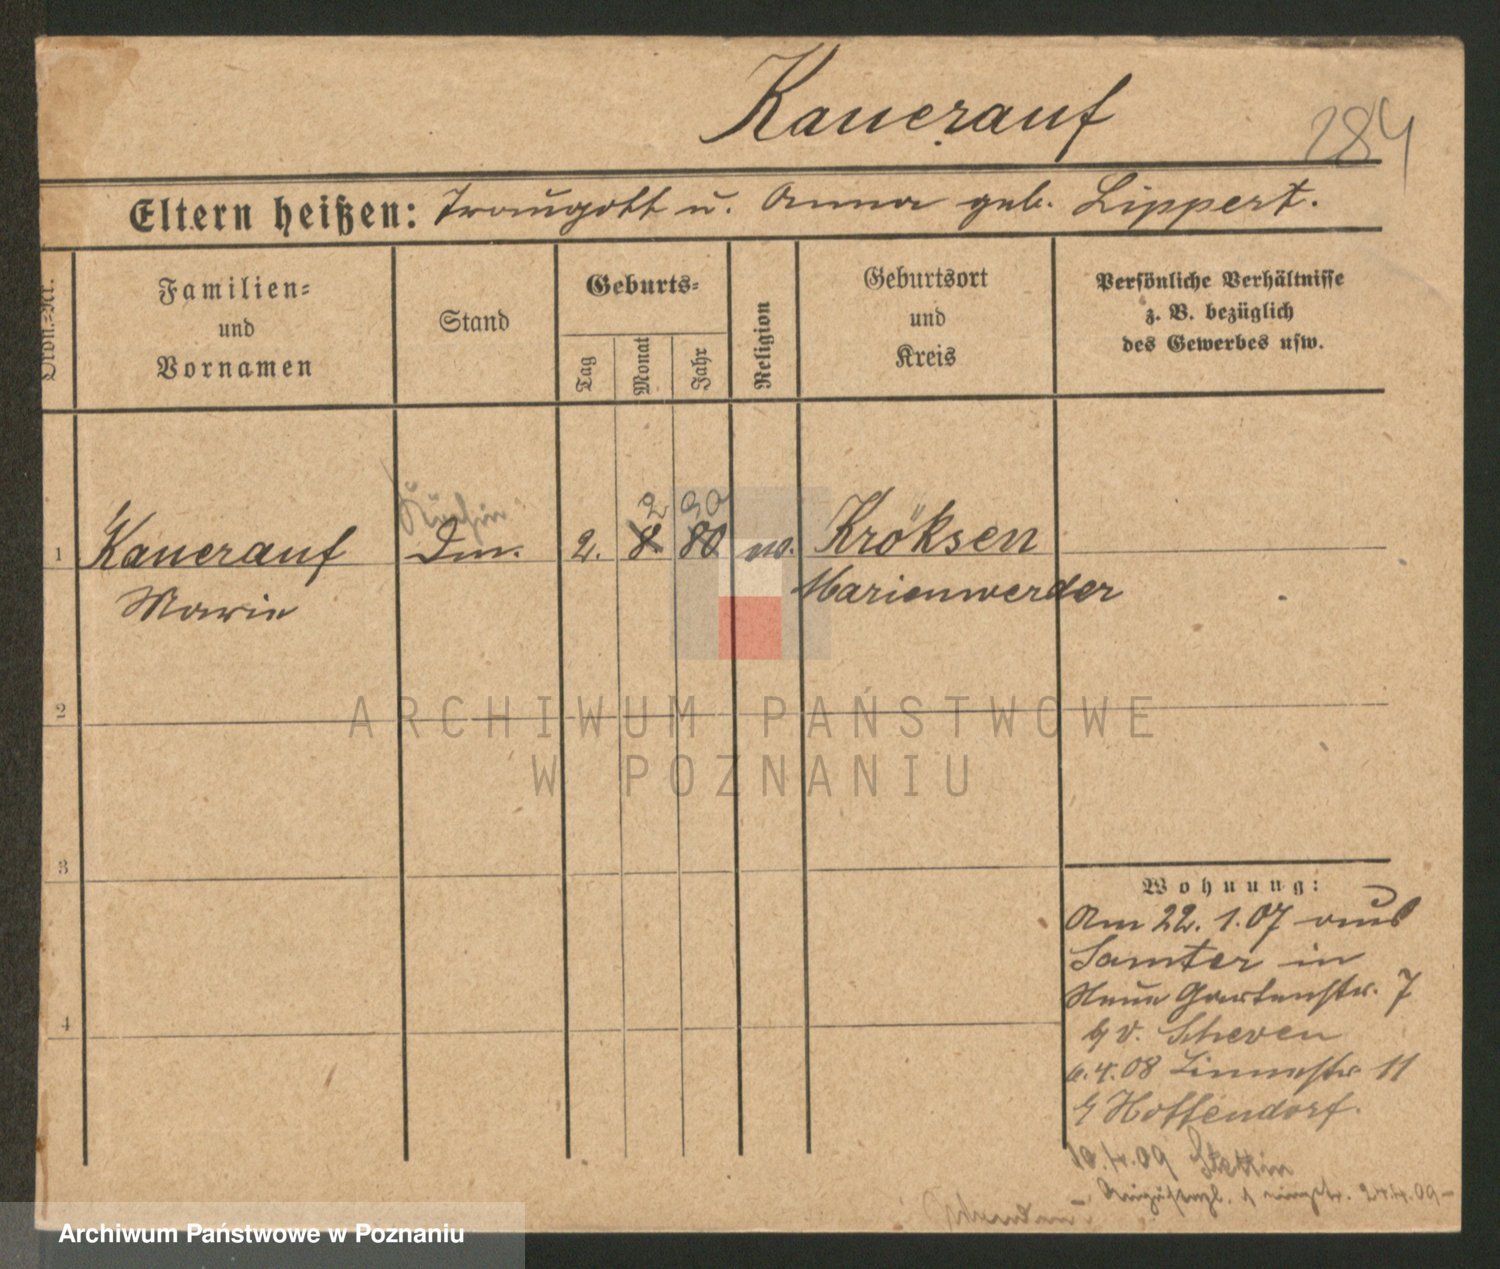 Kauerauf
184
Eltern heißen: Traugott u. Anna geb. Lippert.
Ordn.-Nr.
Familien-
und
Vornamen
Stand
Geburts-
Tag
Monat
Jahr
Religion
Geburtsort
und
Kreis
Persönliche Verhältnisse
z. B. bezüglich
des Gewerbes usw.
Köchin
2 90
1 Kauerauf 2. 8 80 Kröksen
Marie Marienwerder
2
ARCHIWUM PAŃSTWOWE
W POZNANIU
3
4
Wohnung:
Am 22. 1. 07 aus
Samter in
Neue Gartenstr. 7
b/ v. Scheven
6.4.08 Linnestr 11
Hoffendorf.
10.4.09 Stettin
24.4.09-
Archiwum Państwowe w Poznaniu